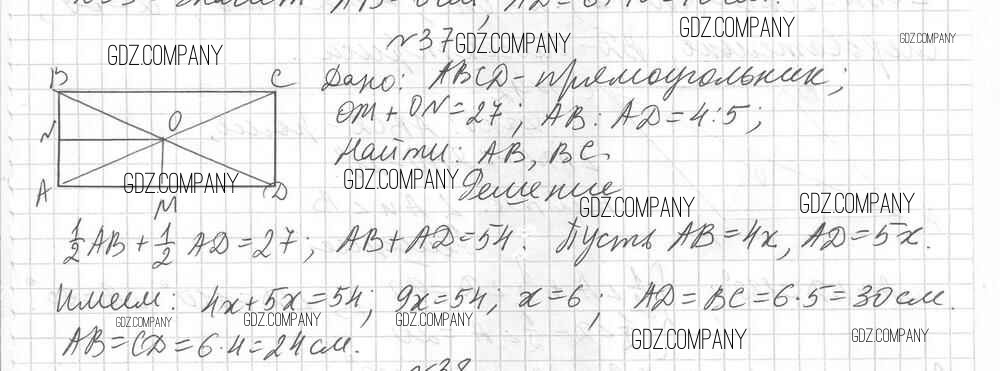 №37
B C Дано: ABCD - прямоугольник;
O OM + ON = 27; AB : AD = 4:5;
N Найти: AB, BC.
A M D Решение
1/2 AB + 1/2 AD = 27; AB + AD = 54. Пусть AB = 4x, AD = 5x.
Имеем: 4x + 5x = 54; 9x = 54; x = 6; AD = BC = 6·5 = 30 см.
AB = CD = 6·4 = 24 см.
№38
GDZ.COMPANY
GDZ.COMPANY
GDZ.COMPANY
GDZ.COMPANY
GDZ.COMPANY
GDZ.COMPANY
GDZ.COMPANY
GDZ.COMPANY
GDZ.COMPANY
GDZ.COMPANY
GDZ.COMPANY
GDZ.COMPANY
GDZ.COMPANY